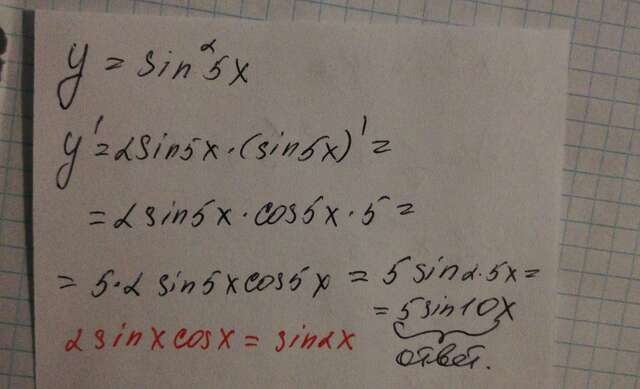 y = sin²5x
y' = 2sin5x·(sin5x)' =
= 2sin5x·cos5x·5 =
= 5·2 sin5xcos5x = 5sin2·5x =
= 5sin10x
2sinxcosx = sin2x
ответ.